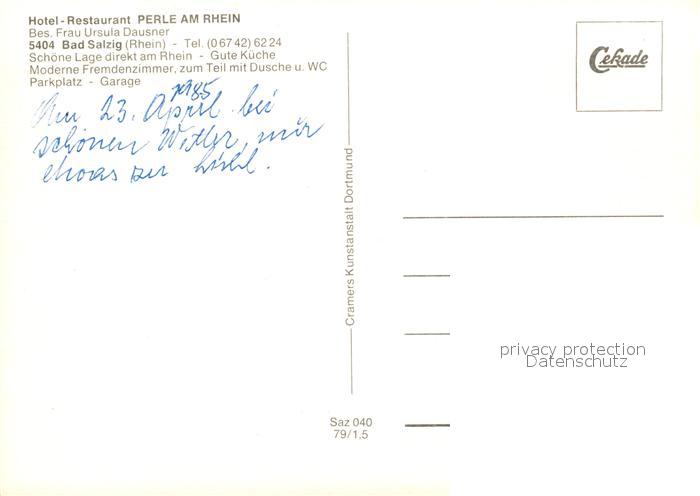 Hotel-Restaurant PERLE AM RHEIN
Bes. Frau Ursula Dausner
5404 Bad Salzig (Rhein) - Tel. (0 67 42) 62 24
Schöne Lage direkt am Rhein - Gute Küche
Moderne Fremdenzimmer, zum Teil mit Dusche u. WC
Parkplatz - Garage
1985
Am 23. April bei
schönen Wetter, nur
etwas zu kühl.
Cekade
Cramers Kunstanstalt Dortmund
privacy protection
Datenschutz
Saz 040
79/1,5